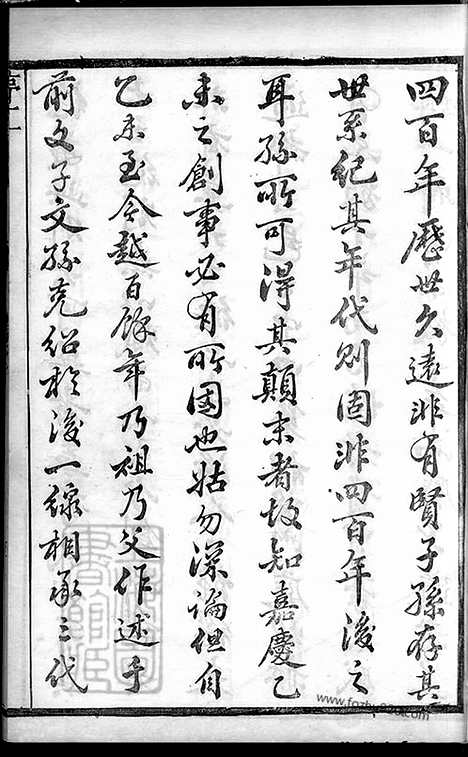 四百年歷世久遠非有賢子孫存其
世系紀其年代則固非四百年後之
耳孫所可得其顛末者故知嘉慶乙
未之創事必有所因也姑勿深論但自
乙未至今越百餘年乃祖乃父作述于
前文子文孫克紹於後一線相承三代
序二